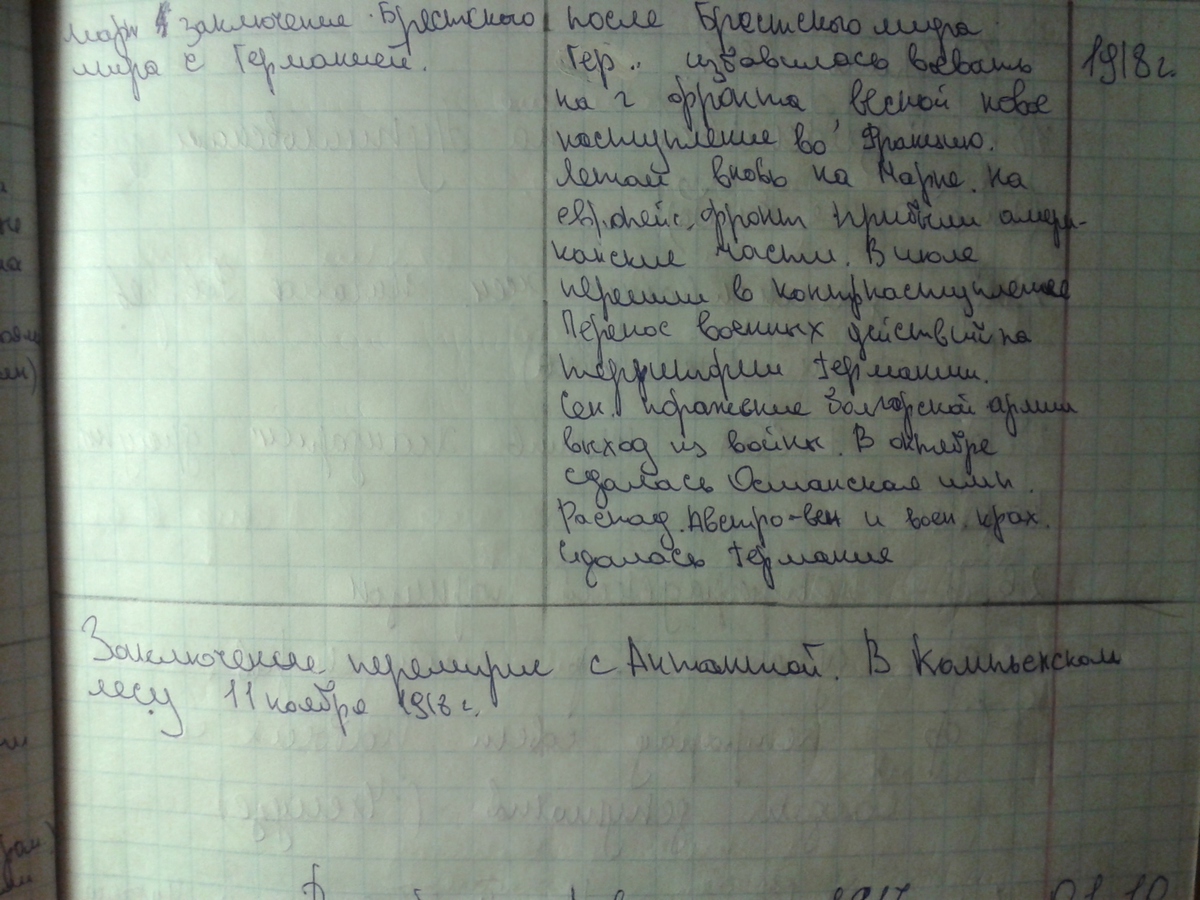 март заключение Брестского
мира с Германией.
после Брестского мира
Гер.. избавилась воевать
на 2 фронта, весной новое
наступление во Францию.
Летом вновь на Марне. На
европейс. фронт прибыли амери-
канские части. В июле
перешли в контрнаступление
Перенос военных действий на
территории Германии.
Сен. поражение Болгарской армии
выход из войны. В октябре
сдалась Османская имп.
Распад Австро-вен и воен. крах.
Сдалась Германия
1918 г.
Заключение перемирие с Антантой. В Компьенском
лесу 11 ноября 1918 г.